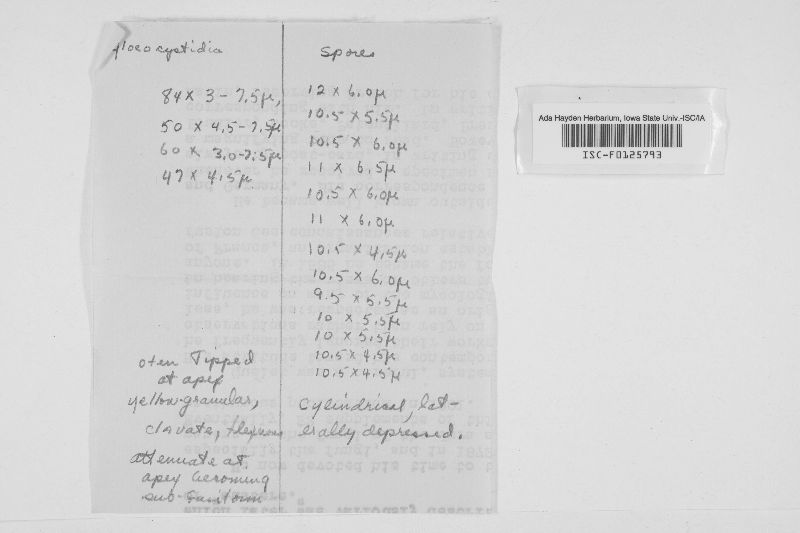 Gloeocystidia
84 x 3 - 7.5µ,
50 x 4.5 - 7.5µ
60 x 3.0-7.5µ
47 x 4.5µ
often Tipped
at apex
yellow-granular,
clavate,
attenuate at
apex becoming
sub-fusiform
Spores
12 x 6.0µ
10.5 x 5.5µ
10.5 x 6.0µ
11 x 6.5µ
10.5 x 6.0µ
11 x 6.0µ
10.5 x 4.5µ
10.5 x 6.0µ
9.5 x 5.5µ
10 x 5.5µ
10 x 5.5µ
10.5 x 4.5µ
10.5 x 4.5µ
cylindrical, lat-
erally depressed.
Ada Hayden Herbarium, Iowa State Univ.-ISC/IA
ISC-F0125793